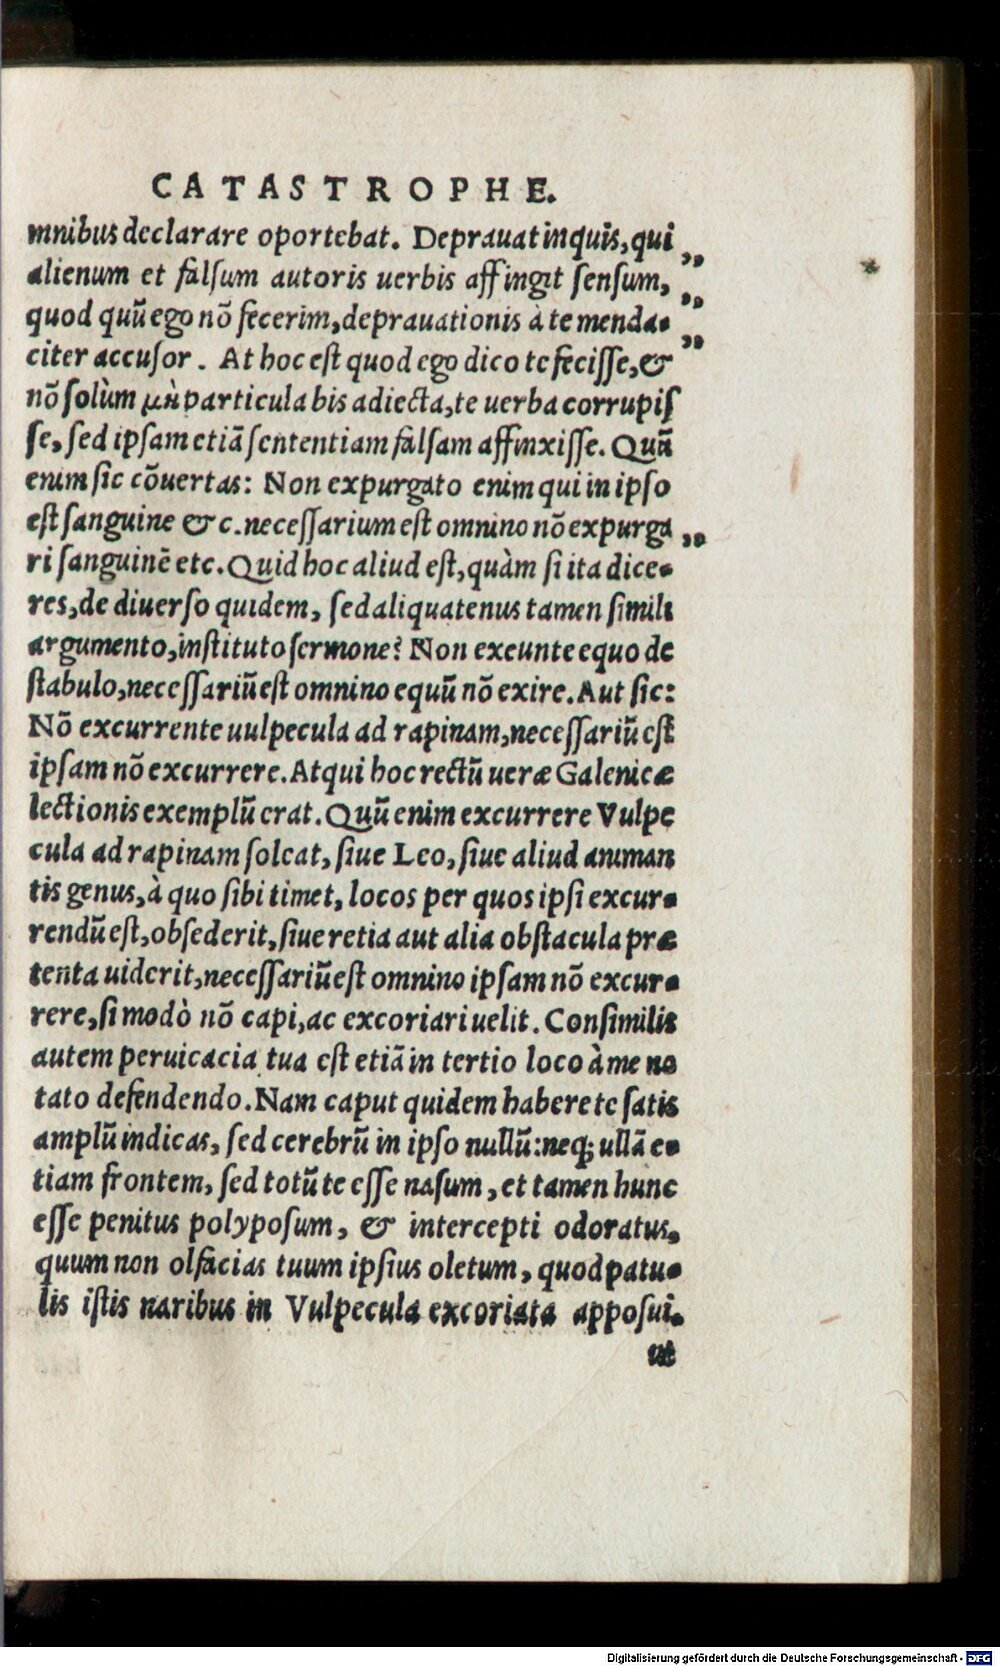 CATASTROPHE.
mnibus declarare oportebat. Deprauat inquis, qui ,,
alienum et falsum autoris uerbis affingit sensum, ,,
quod quũ ego nõ fecerim, deprauationis à te menda- ,,
citer accusor. At hoc est quod ego dico te fecisse, &
nõ solùm μὴ particula bis adiecta, te uerba corrupis
se, sed ipsam etiã sententiam falsam affinxisse. Quũ
enim sic cõuertas: Non expurgato enim qui in ipso
est sanguine & c. necessarium est omnino nõ expurga ,,
ri sanguinẽ etc. Quid hoc aliud est, quàm si ita dice-
res, de diuerso quidem, sed aliquatenus tamen simili
argumento, instituto sermone? Non exeunte equo de
stabulo, necessariũ est omnino equũ nõ exire. Aut sic:
Nõ excurrente uulpecula ad rapinam, necessariũ est
ipsam nõ excurrere. Atqui hoc rectũ ueræ Galenicæ
lectionis exemplũ erat. Quũ enim excurrere Vulpe
cula ad rapinam soleat, siue Leo, siue aliud animan
tis genus, à quo sibi timet, locos per quos ipsi excur-
rendũ est, obsederit, siue retia aut alia obstacula præ
tenta uiderit, necessariũ est omnino ipsam nõ excur-
rere, si modò nõ capi, ac excoriari uelit. Consimilis
autem peruicacia tua est etiã in tertio loco à me no
tato defendendo. Nam caput quidem habere te satis
amplũ indicas, sed cerebrũ in ipso nullũ: neq; ullã e-
tiam frontem, sed totũ te esse nasum, et tamen hunc
esse penitus polyposum, & intercepti odoratus,
quum non olfacias tuum ipsius oletum, quod patu-
lis istis naribus in Vulpecula excoriata apposui.
ut
Digitalisierung gefördert durch die Deutsche Forschungsgemeinschaft - DFG